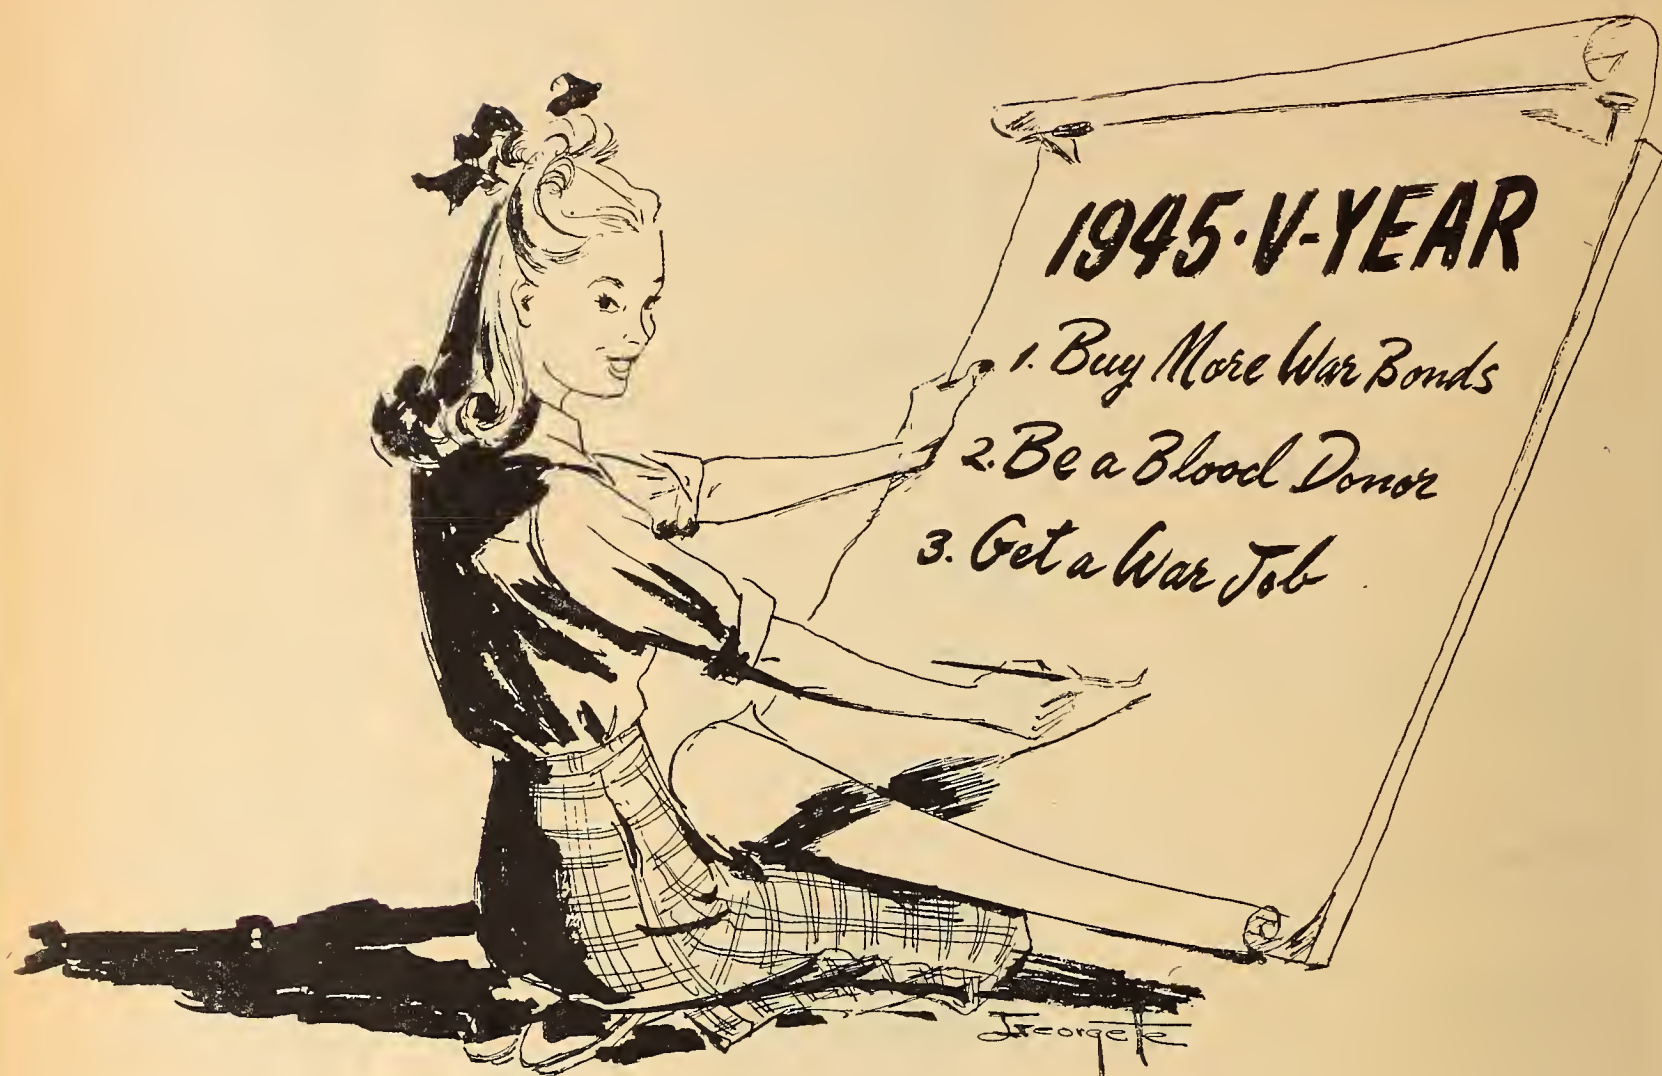 1945·V-YEAR
1. Buy More War Bonds
2. Be a Blood Donor
3. Get a War Job
Georgette